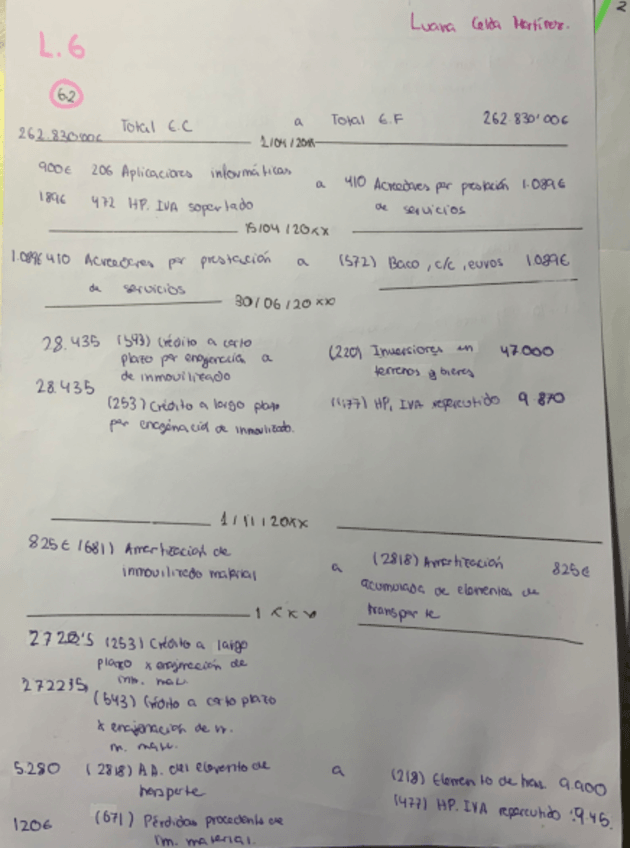 2
Luana Celda Martínez.
L.6
6.2
262.830'00€ Total E.C a Total E.F 262.830'00€
1/04/20XX
900€ 206 Aplicaciones informáticas a 410 Acreedores por prestación 1.089€
189€ 472 HP. IVA soportado de servicios
15/04/20XX
1.089€ 410 Acreedores por prestación a (572) Baco, c/c, euros 1.089€
de servicios
30/06/20XX
28.435 (543) Crédito a corto (220) Inversiones en 47.000
plazo por enagenación a terrenos y bienes
de inmovilizado
28.435 (253) Crédito a largo plazo (477) HP, IVA repercutido 9.870
por enagenación de inmovilizado.
1/11/20XX
825€ (681) Amortización de a (2818) Amortización 825€
inmovilizado material acumulada de elementos de
transporte
(253) Crédito a largo
plazo x enajenación de
(543) Crédito a corto plazo
x enajenación de
5.280 (2818) A.A. del elemento de a (218) Elemento de 9.900
(477) HP. IVA repercutido
(671) Pérdidas procedente de
material.